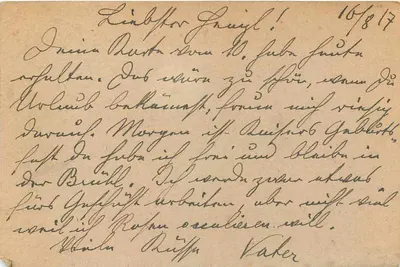 16/8 17
Liebster Heinzl!
Deine Karte vom 10. habe heute
erhalten. Das wäre zu schön, wenn Du
Urlaub bekämest, freue mich riesig
darauf. Morgen ist Kaisers Geburts-
fest da habe ich frei und bleibe in
der Brühl. Ich werde zwar etwas
fürs Geschäft arbeiten, aber nicht viel
weil ich Rosen oculieren will.
Viele Küsse Vater